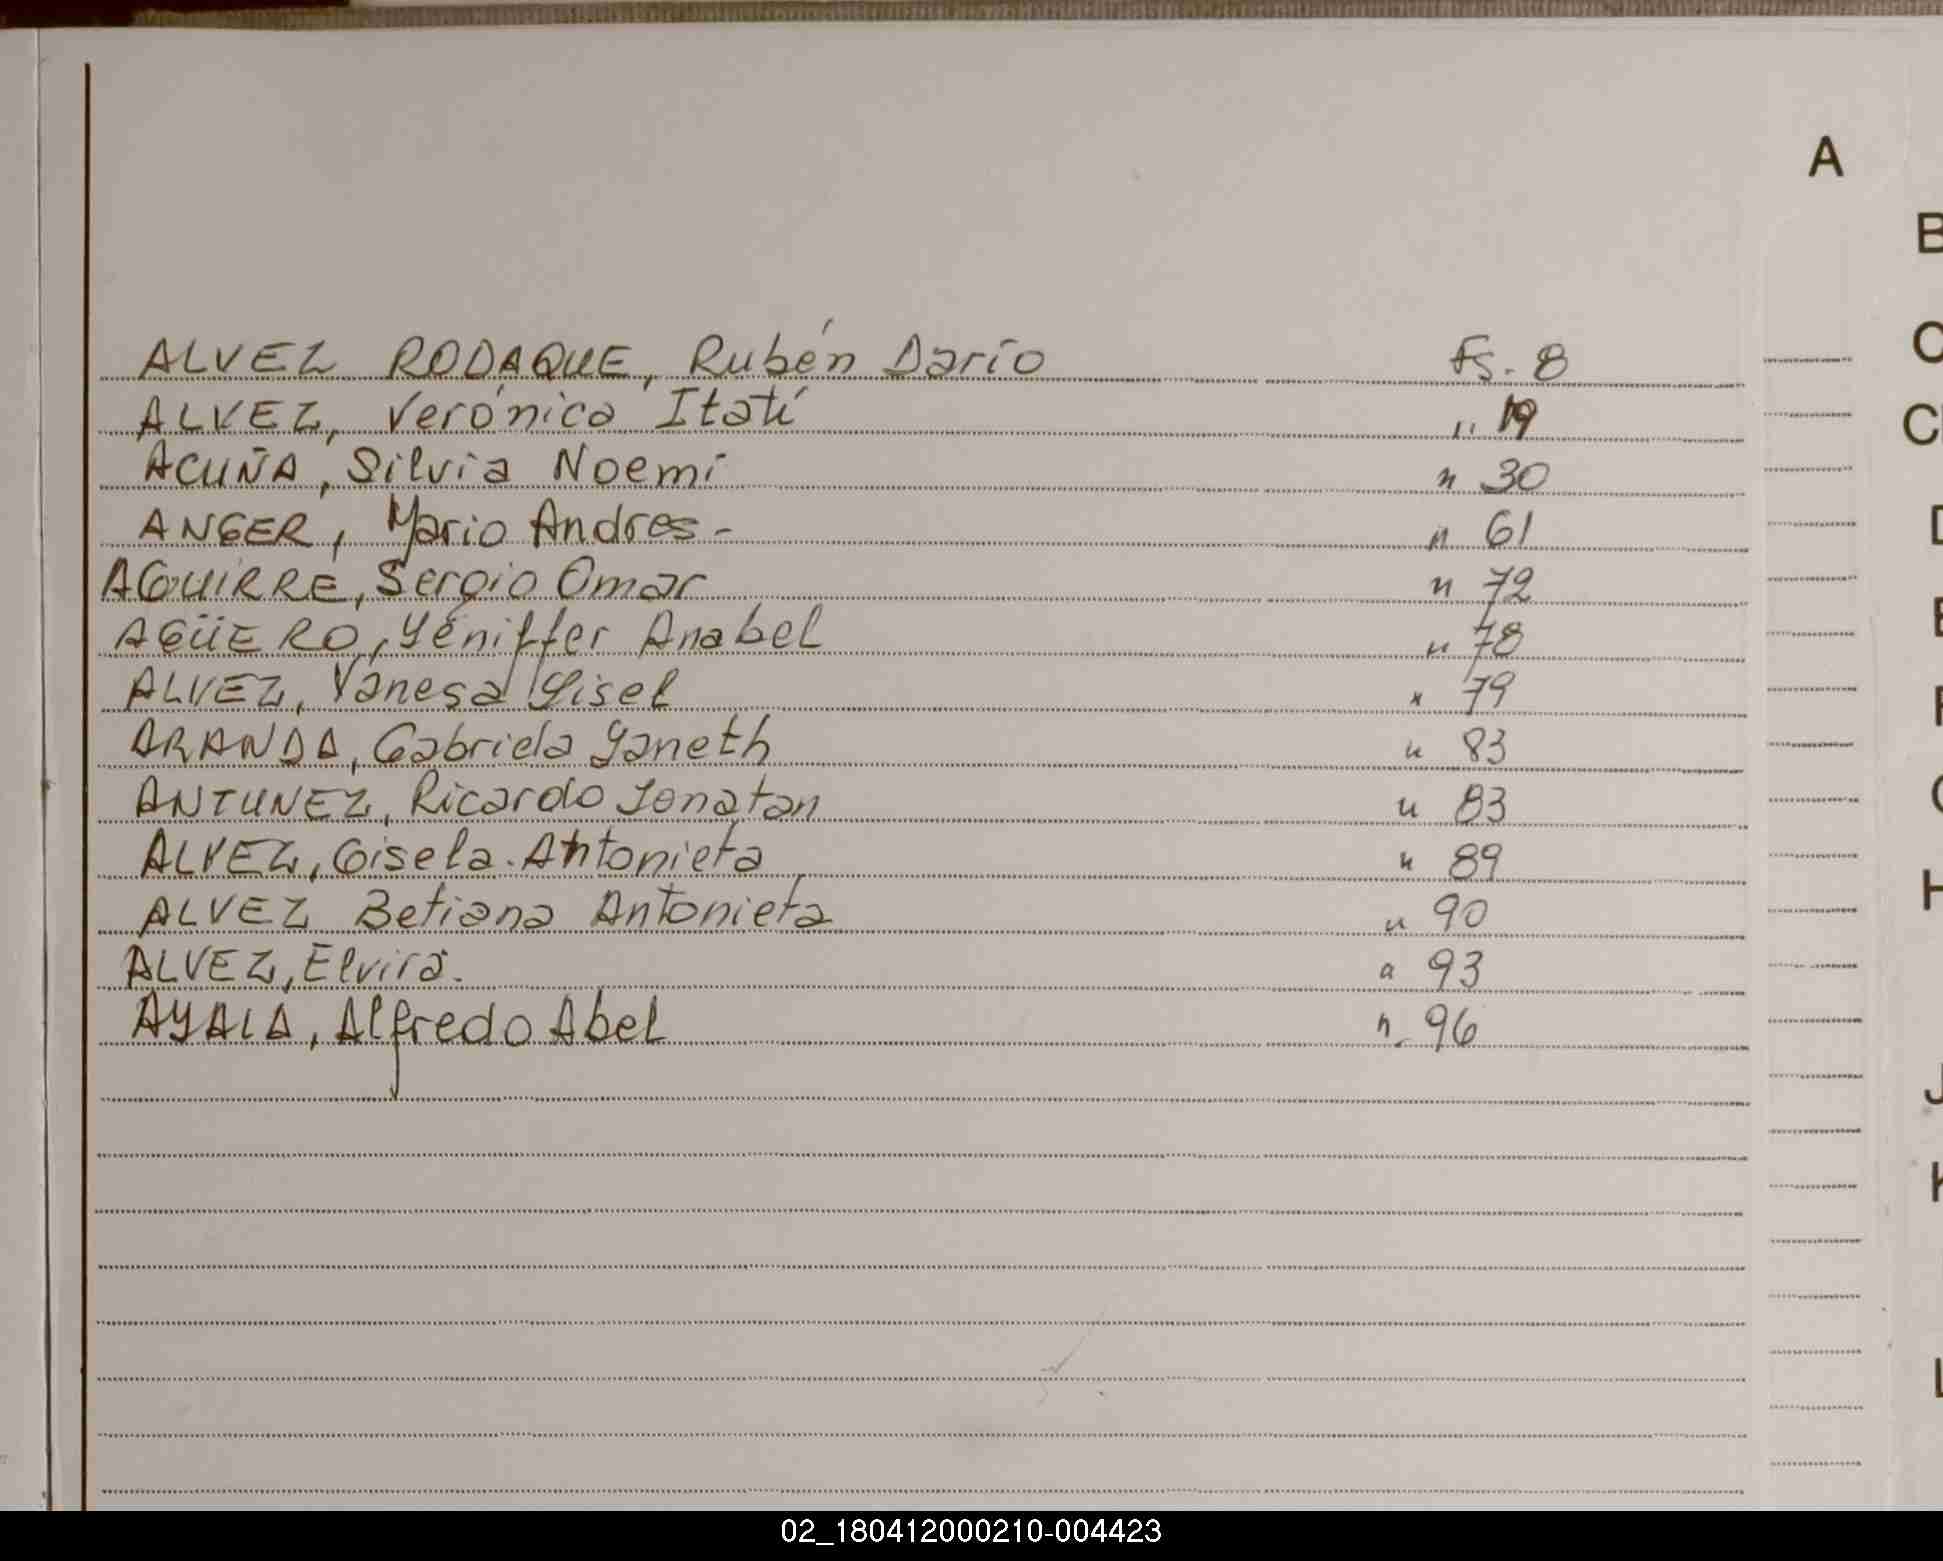 A
B
C
CH
ALVEZ RODAQUE, Rubén Darío Fs. 8
ALVEZ, Verónica Itatí " 19
ACUÑA, Silvia Noemi " 30
ANGER, Mario Andres- " 61
AGUIRRE, Sergio Omar " 72
AGÜERO, Yéniffer Anabel " 78
ALVEZ, Vanesa Gisel " 79
ARANDA, Gabriela Yaneth " 83
ANTUNEZ, Ricardo Jonatan " 83
ALVEZ, Gisela Antonieta " 89
ALVEZ Betiana Antonieta " 90
ALVEZ, Elvira. " 93
AYALA, Alfredo Abel " 96
H
J
K
L
02_180412000210-004423